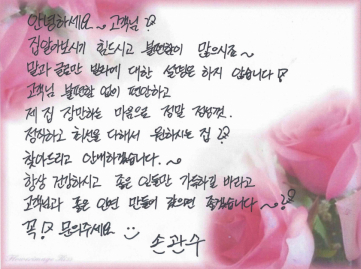 안녕하세요~ 고객님!
집알아보시기 힘드시고 불편함이 많으시죠~
말과 글로만 방하에 대한 설명은 하지 않습니다!
고객님 불편함 없이 편안하고
제 집 장만하는 마음으로 정말 정성껏.
정직하고 최선을 다해서 원하시는 집!
찾아드리고 안내하겠습니다.~
항상 건강하시고 좋은 일들만 가득하길 바라고
고객님과 좋은 인연 만들어 갔으면 좋겠습니다~!
꼭! 문의주세요
손관수